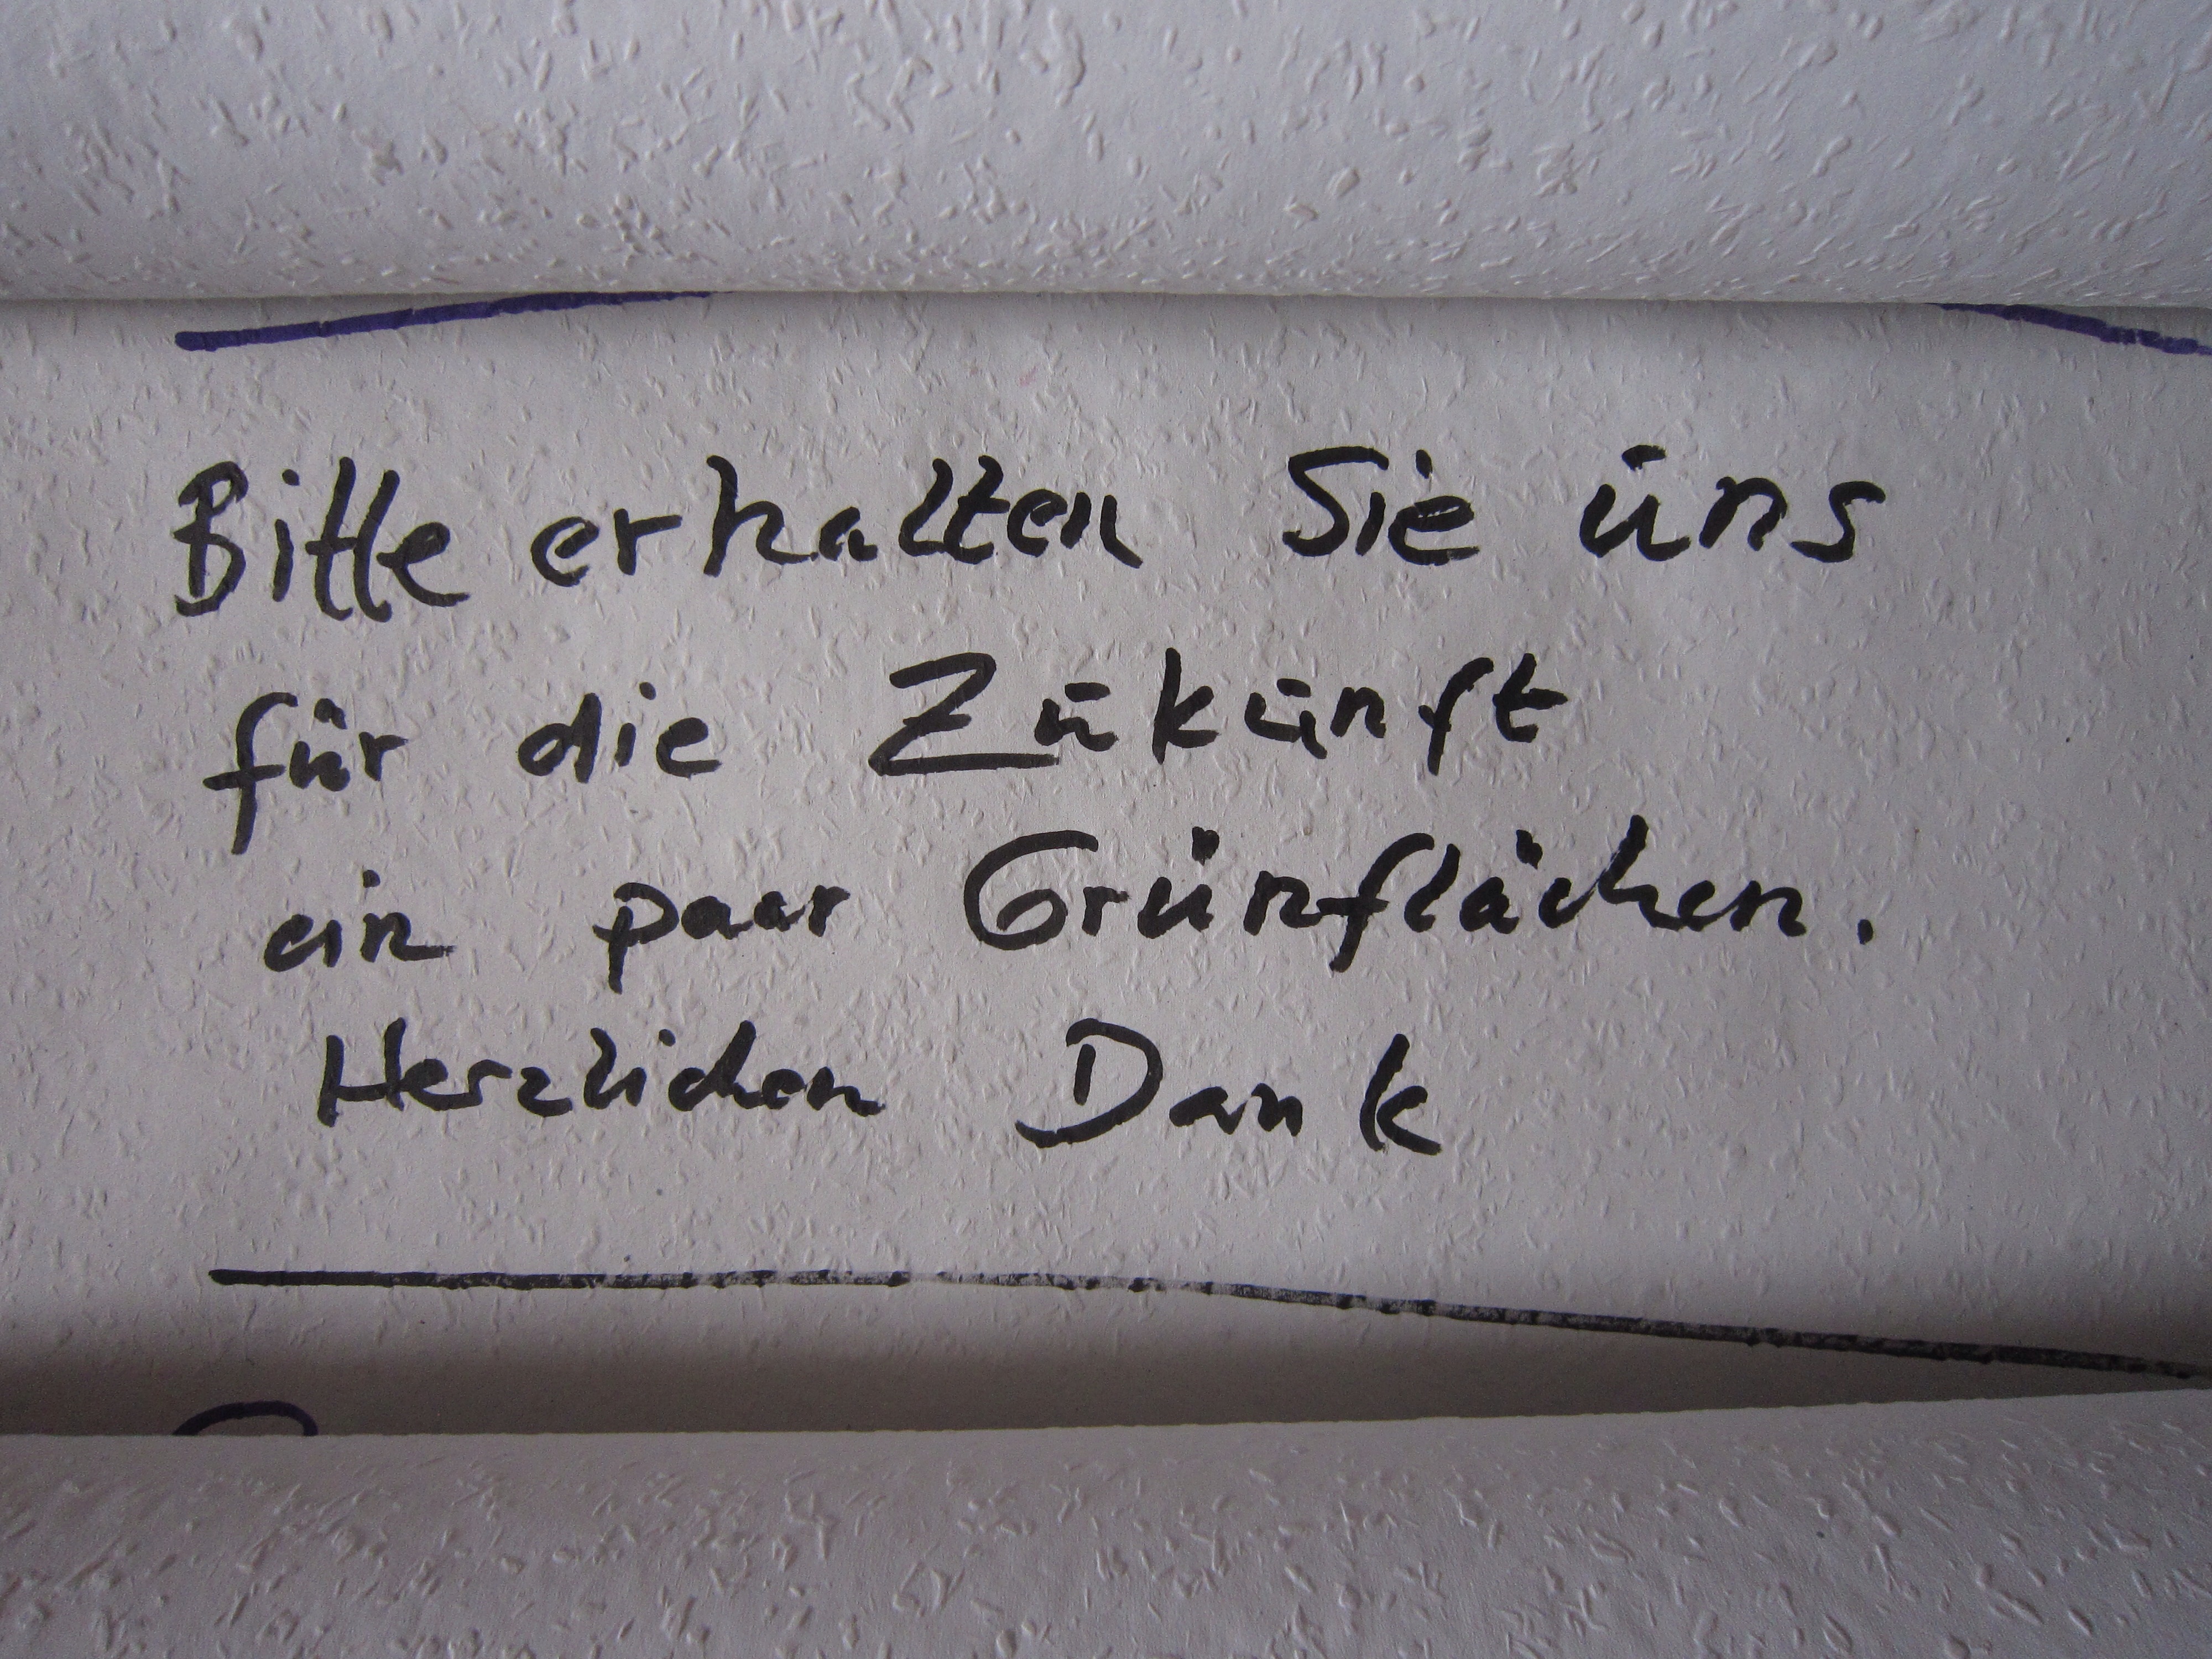 Bitte erhalten Sie uns
für die Zukunft
ein paar Grünflächen.
Herzlichen Dank